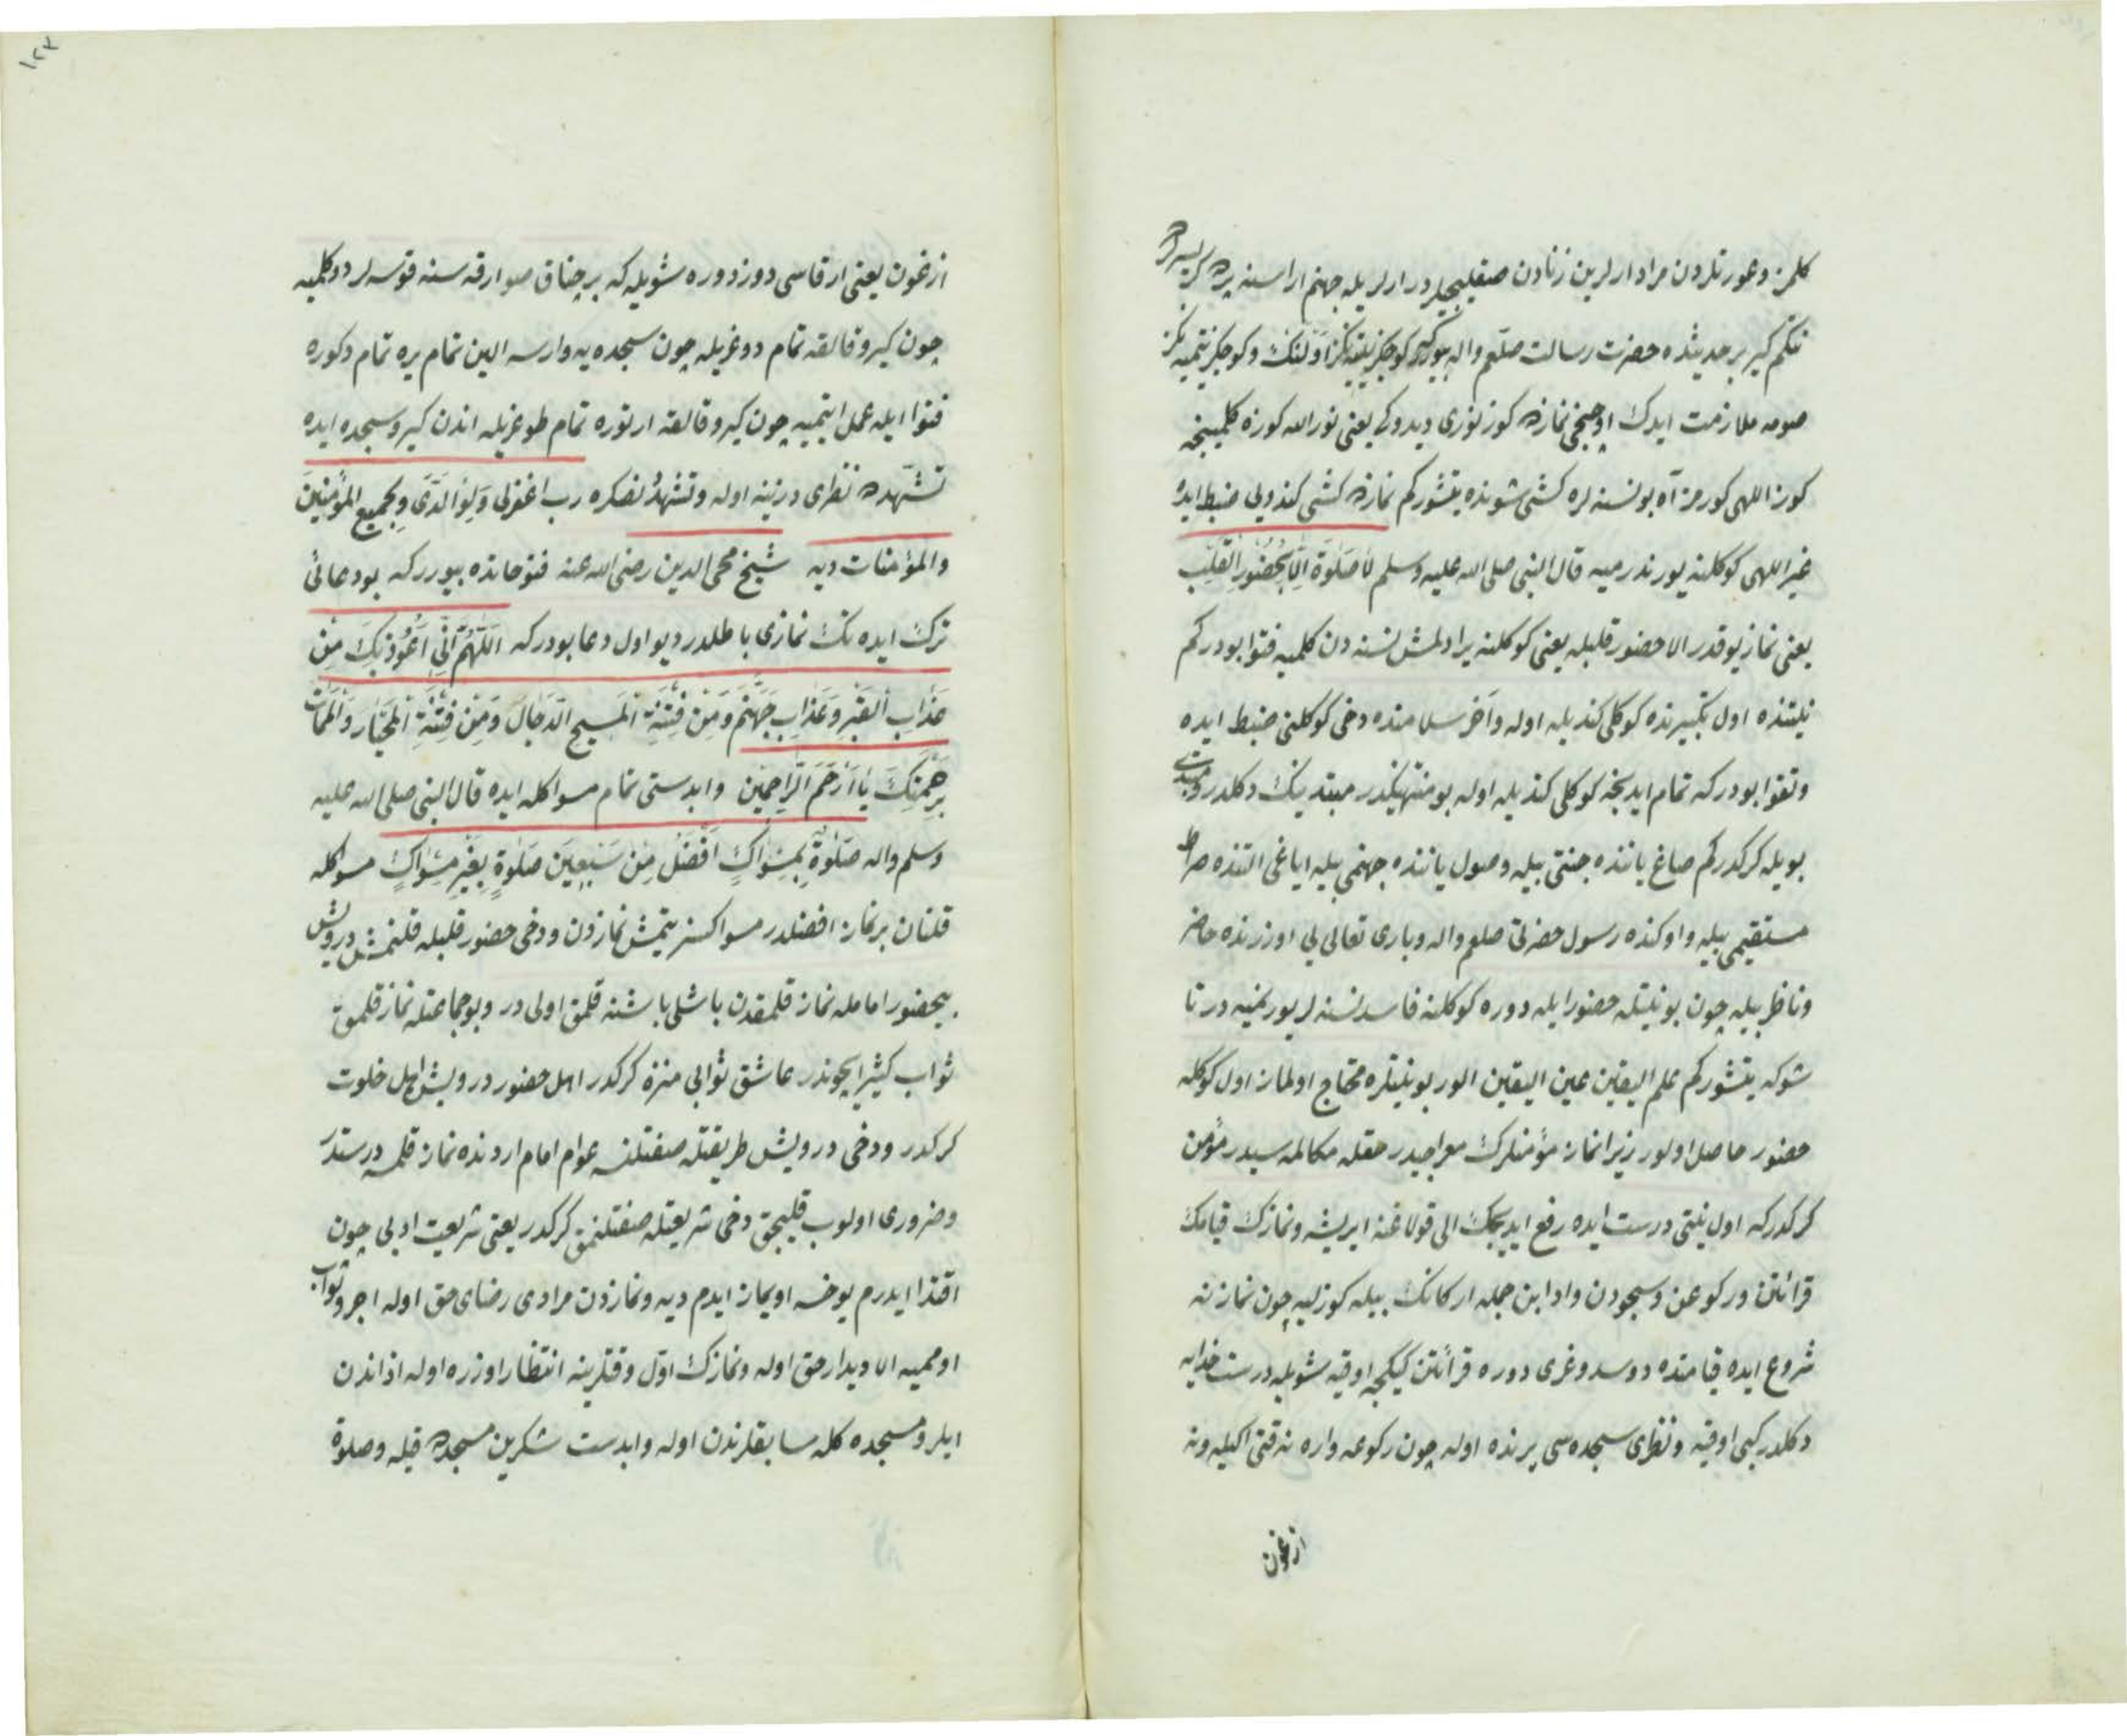 كلمز وعورتلردن مراد ارلرين زنادن صقليجيلردر ارلريله جهنم اراسنه پرده كريسرلر
نتكم كير بر حديثده حضرت رسالت صلعم واله بيورر
صومه ملازمت ايدك اوچنجى نمازده كوز نورى ديدوكى يعنى نور الله كوزه كلمينجه
كوز اللهى كورمز آه بو نسنه لره كشى شونده يتشور كم نمازده كشى كندويى ضبط ايده
غير اللهى كوكلنه يورتدرميه قال النبى صلى الله عليه وسلم لا صلوة الا بحضور القلب
يعنى نماز يوقدر الا حضور قلبله يعنى كوكلنه يرادلمش نسنه دن كلميه فتوا بودر كم
نيتنده اول تكبيرنده كوكلى كنديله اوله و آخر سلامنده دخى كوكلنى ضبط ايده
وتقوا بودركه تمام ايدنجه كوكلى كنديله اوله بو منتهينكدر مبتدينك دكلدر ومبتدى
بويله كركدركم صاغ ياننده جنتى بيله وصول ياننده جهنمى بيله اياغى التنده صراط
مستقيمى بيله واوكنده رسول حضرتى صلعم واله وبارى تعالى يى اوزرنده حاضر
وناظر بيله چون بو نيتله حضور ايله دوره كوكلنه فاسد نسنه لر يورتميه در تا
شوكه يتشوركم علم اليقين عين اليقين الور بو نيتلره محتاج اولماز اول كوكله
حضور حاصل اولور زيرا نماز مؤمنلرك معراجيدر حقله مكالمه سيدر مؤمن
كركدركه اول نيتى درست ايده رفع ايديجك الى قولاغنه ايريشه ونمازك قيامك
قرائتن وركوعن وسجودن وادابن جمله اركانك بيله كوزليه چون نمازنه
شروع ايده قيامنده دوسدوغرى دوره قرائتن كيكجه اوقيه شويله درست خدايه
دكلدر كبى اوقيه ونظرى سجده سى يرنده اوله چون ركوعه واره نه قتى اكيله ونه
ازغون
١٢٣
ازغون يعنى ارقاسى دوزدوره شويله كه بر چناق صو ارقه سنه قوسه لر دوكلميه
چون كيرو قالقه تمام دوغريله چون سجده يه وارسه الين تمام يره تمام دكوره
فتوا ايله عمل ايتميه چون كيرو قالقه ارتوره تمام طوغريله اندن كيرو سجده ايده
تشهده نظرى ديزينه اوله وتشهد نصكره رب اغفرلى ولوالدى ولجميع المؤمنين
والمؤمنات ديه شيخ محى الدين رضى الله عنه فتوحاتده بيوررکه بو دعائى
ترك ايده نك نمازى باطلدر ديو اول دعا بودركه اللهم انى اعوذ بك من
عذاب القبر وعذاب جهنم ومن فتنة المسيح الدجال ومن فتنة المحيا والممات
برحمتك يا ارحم الراحمين وابدستى تمام مسواكله ايده قال النبى صلى الله عليه
وسلم واله صلوة بمسواك افضل من سبعين صلوة بغير مسواك مسواكله
قلنان بر نماز افضلدر مسواكسز يتمش نمازدن ودخى حضور قلبله قلنمش درويش
بيحضور امامله نماز قلمقدن باشلى باشنه قلمق اولى در وبو جماعتله نماز قلمق
ثواب كثير ايچوندر عاشق ثوابى منزه كركدر اهل حضور درويش اهل خلوت
كركدر ودخى درويش طريقتله صفتلنسه عوام امام اردنده نماز قلمسه درستدر
وضرورى اولوب قليجق دخى شريعتله صفتلنمق كركدر يعنى شريعت ادبى چون
اقتدا ايدرم يوخسه اويماز ايدم ديه ونمازدن مرادى رضاى حق اوله اجر وثواب
اومميه الا ديدار حق اوله ونمازك اول وقتلرينه انتظار اوزره اوله اذاندن
ايلرو مسجده كله سابقلرندن اوله وابدست شكرين مسجده قيله وصلوة